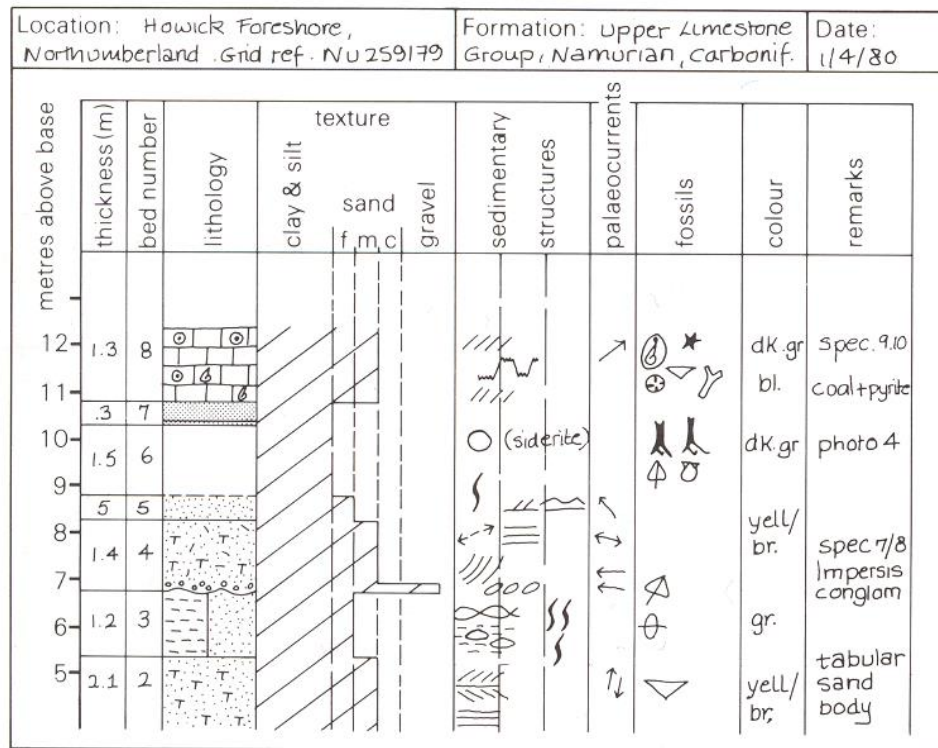 Location: Howick Foreshore,
Northumberland. Grid ref. NU259179
Formation: Upper Limestone
Group, Namurian, Carbonif.
Date:
1/4/80
metres above base
thickness (m)
bed number
lithology
texture
clay & silt
sand
f m c
gravel
sedimentary
structures
palaeocurrents
fossils
colour
remarks
12
1.3
8
dk.gr
spec. 9.10
11
bl.
coal+pyrite
.3
7
10
(siderite)
dk.gr
photo 4
1.5
6
9
5
5
8
yell/
br.
1.4
4
spec 7/8
7
Impersis
conglom
6
1.2
3
gr.
5
2.1
2
yell/
br,
tabular
sand
body